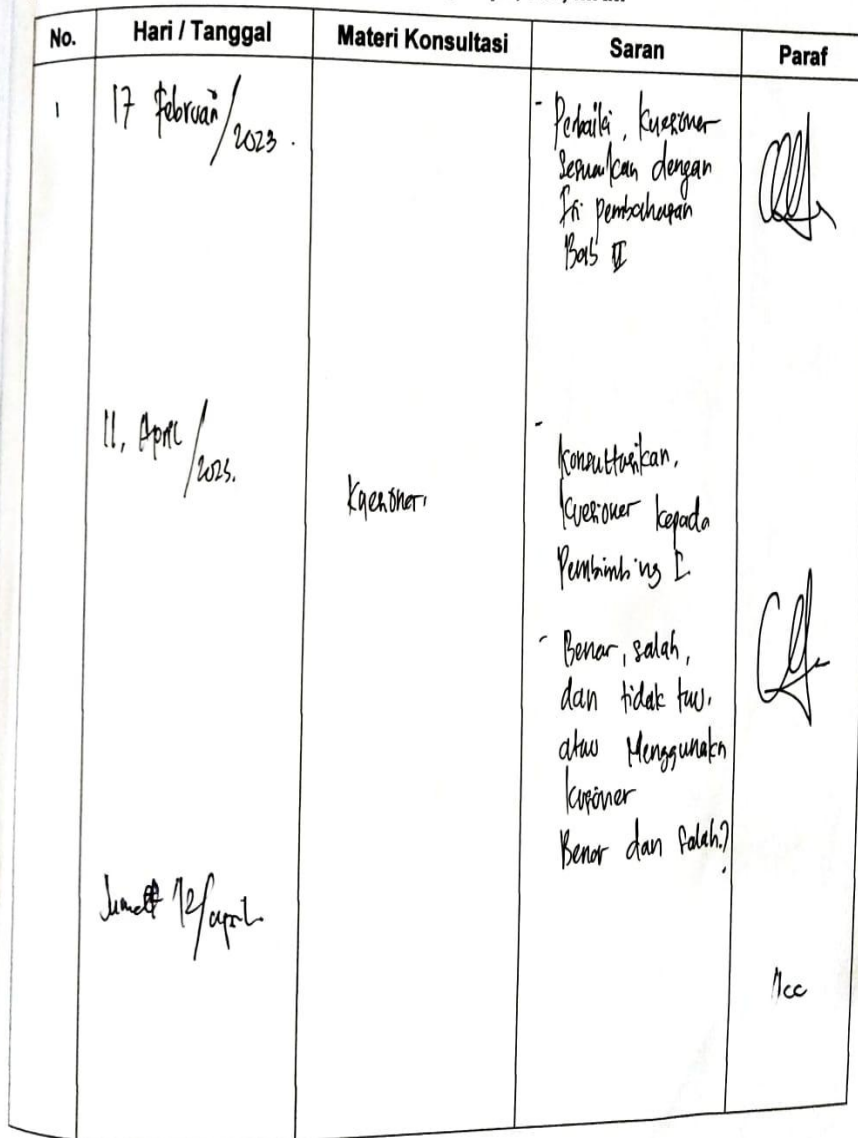 No. Hari / Tanggal Materi Konsultasi Saran Paraf
1 17 Februari / 2023.
- Perbaiki, Kuesioner
Sesuaikan dengan
Isi pembahasan
Bab II
11, April / 2023.
Kuesioner,
-
Konsultasikan,
Kuesioner kepada
Pembimbing I
- Benar, salah,
dan tidak tau.
atau Menggunakn
kuesioner
Benar dan salah.?
12/april
Acc